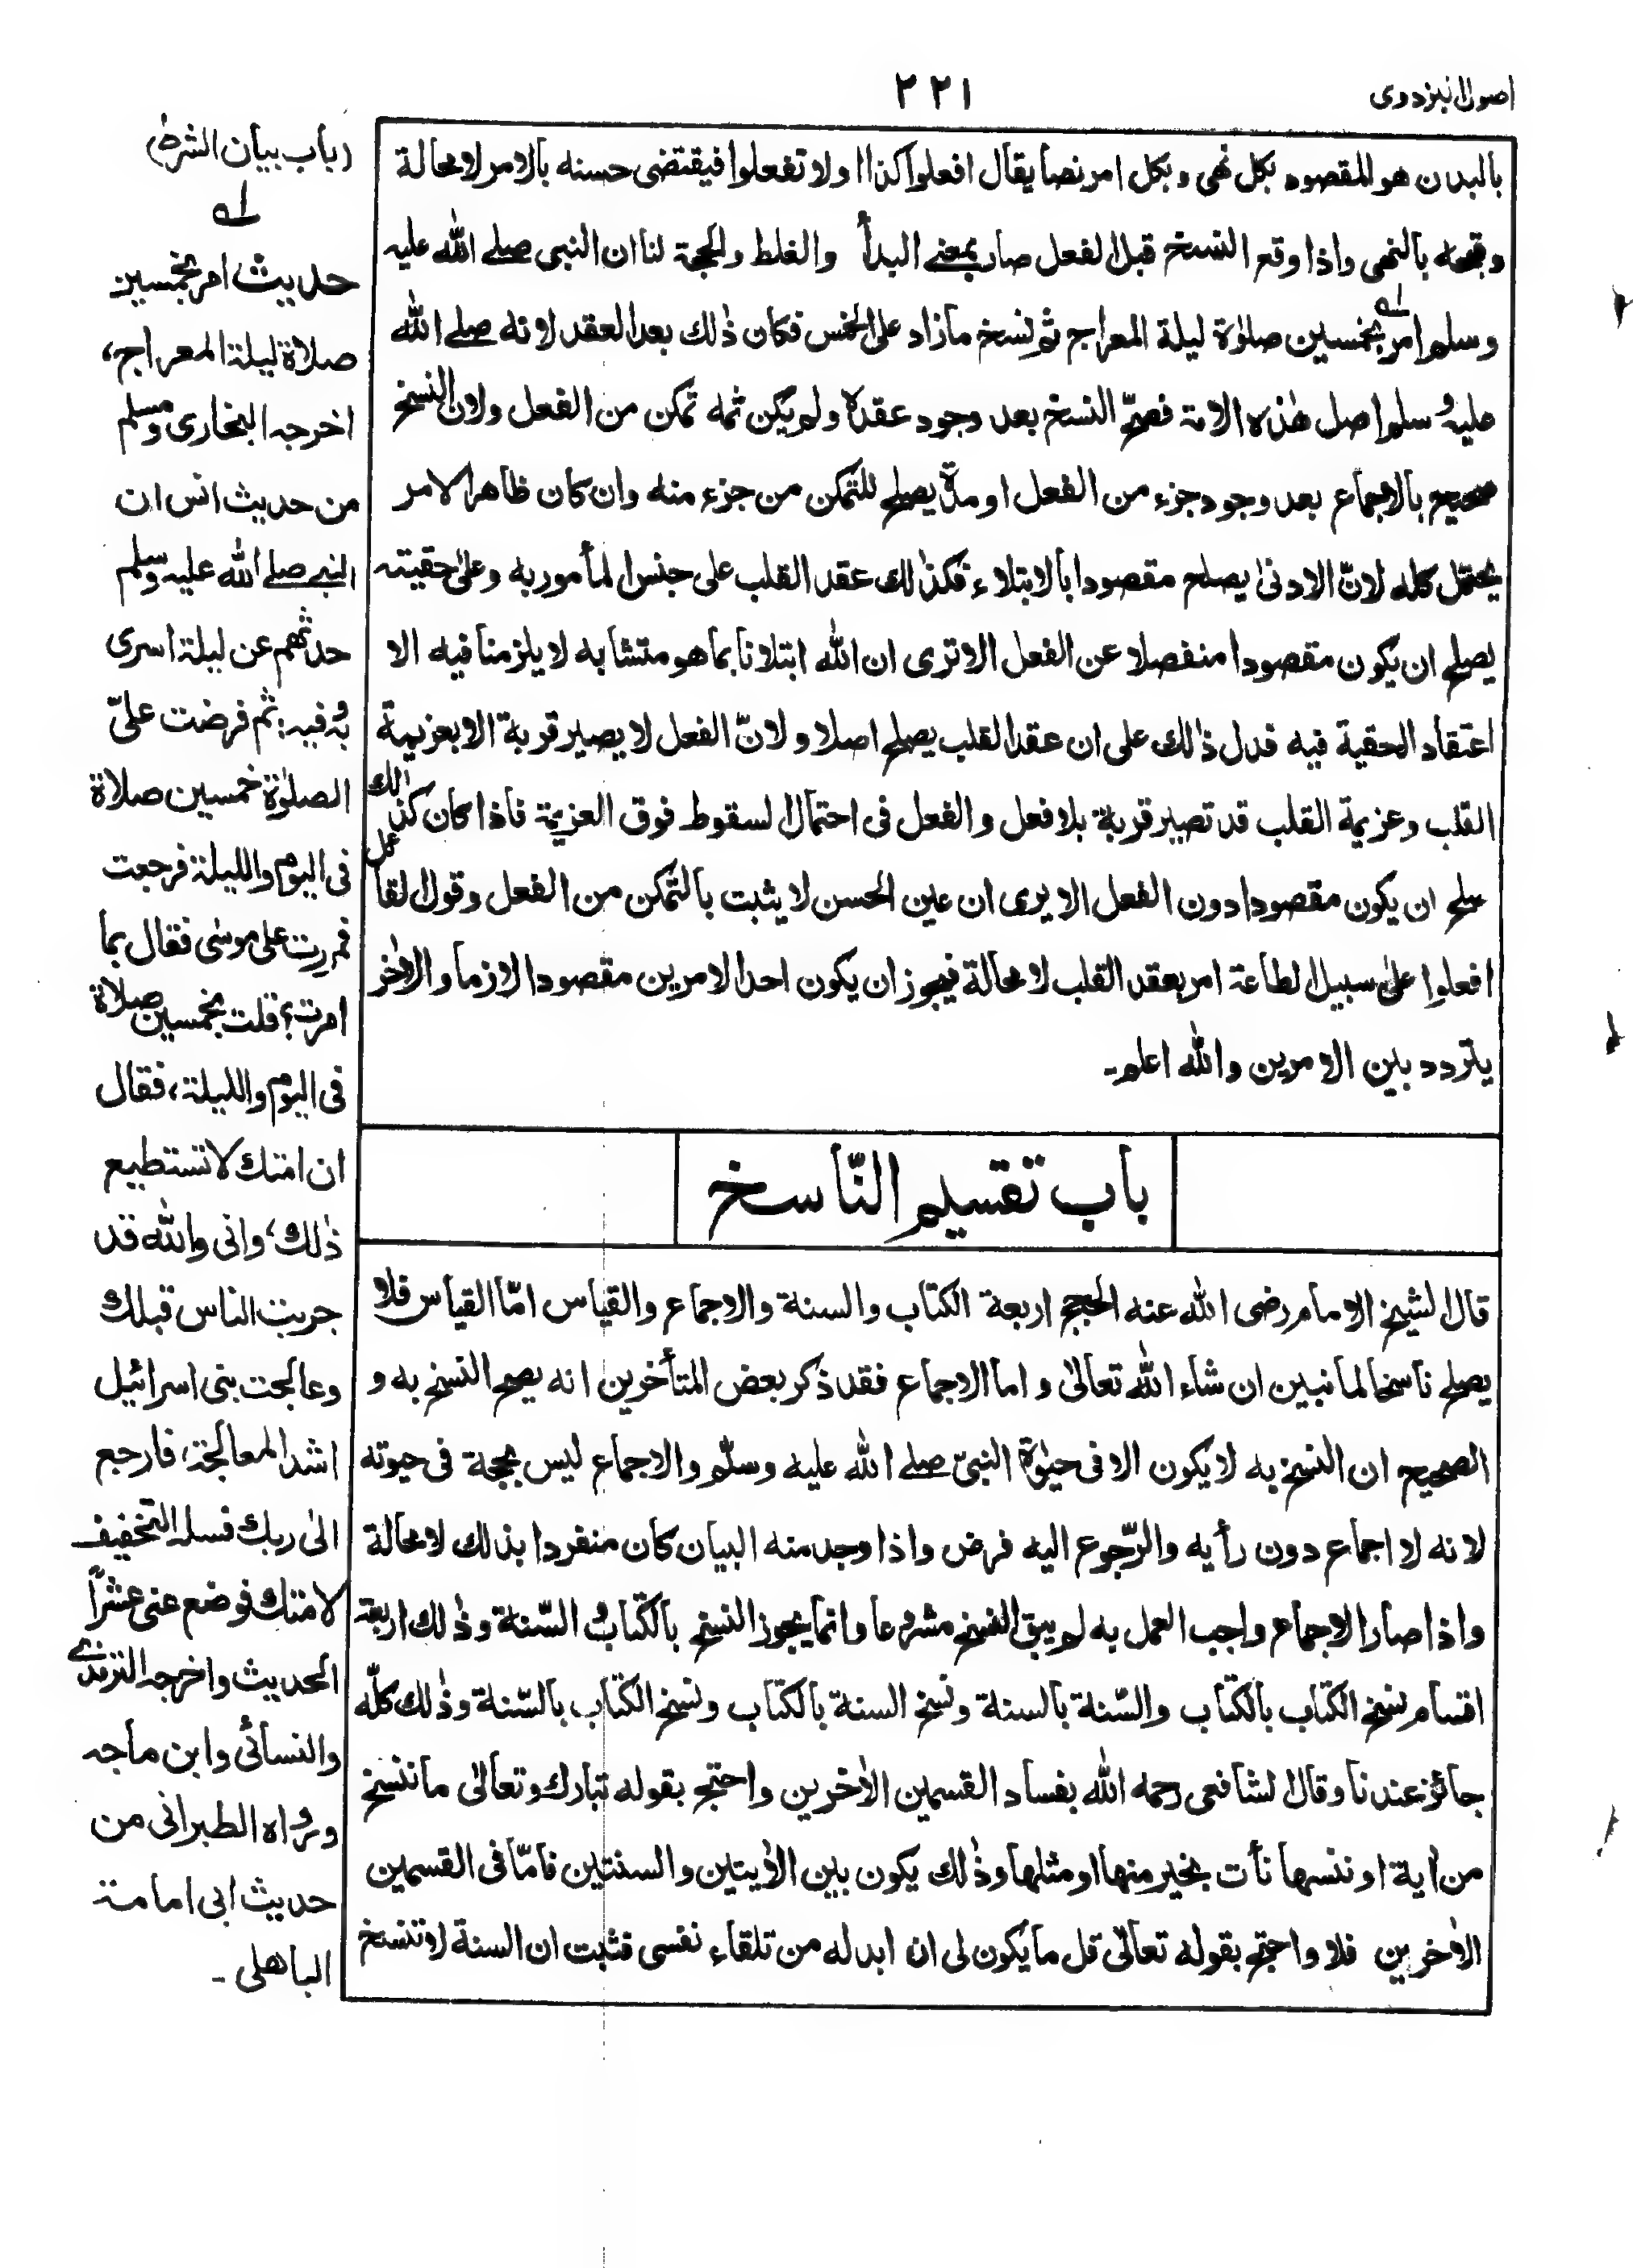 اصول البزدوى
٢٢١
بالبدن هو المقصود بكل نهى وبكل امر نصا يقال افعلوا كذا ا ولا تفعلوا فيقتضى حسنه بالامر لا محالة
وقبحه بالنهى واذا وقع النسخ قبل الفعل صار بمعنى البدأ والغلط والحجة لنا ان النبى صلے الله عليه
وسلم امر بخمسين صلوٰة ليلة المعراج ثم نسخ ما زاد على الخمس فكان ذٰلك بعد العقد لانه صلے الله
عليه وسلم اصل هٰذه الامة فصحّ النسخ بعد وجود عقده ولم يكن ثمه تمكن من الفعل ولان النسخ
صحيح بالاجماع بعد وجود جزء من الفعل او مدة يصلح للتمكن من جزء منه وان كان ظاهر الامر
يحتمل كله لانّ الادنىٰ يصلح مقصودا بالابتلاء فكذٰلك عقد القلب على جنس المأمور به وعلىٰ حقيته
يصلح ان يكون مقصودا منفصلا عن الفعل الا ترى ان الله ابتلانا بما هو متشابه لا يلزمنا فيه الا
اعتقاد الحقية فيه فدل ذٰلك على ان عقد القلب يصلح اصلا ولانّ الفعل لا يصير قربة الا بعزيمة
القلب وعزيمة القلب قد تصير قربة بلا فعل والفعل فى احتمال السقوط فوق العزيمة فاذا كان كذالك
صلح ان يكون مقصودا دون الفعل الا يرى ان عين الحسن لا يثبت بالتمكن من الفعل وقول القائل
افعلوا علىٰ سبيل الطاعة امر بعقد القلب لا محالة فيجوز ان يكون احد الامرين مقصودا لازما والاٰخر
يتردد بين الامرين والله اعلم۔
باب تقسيم النّاسخ
قال الشيخ الامام رضى الله عنه الحجج اربعة الكتاب والسنة والاجماع والقياس امّا القياس فلا
يصلح ناسخا لما نبين ان شاء الله تعالىٰ واما الاجماع فقد ذكر بعض المتأخرين انه يصح النسخ به و
الصحيح ان النسخ به لا يكون الا فى حيوٰة النبىّ صلے الله عليه وسلّم والاجماع ليس بحجة فى حيوته
لانه لا اجماع دون رأيه والرّجوع اليه فرض واذا وجد منه البيان كان منفردا بذلك لا محالة
واذا صار الاجماع واجب العمل به لم يبق النسخ مشروعا وانما يجوز النسخ بالكتاب والسّنة وذٰلك اربعة
اقسام نسخ الكتاب بالكتاب والسّنة بالسنة ونسخ السنة بالكتاب ونسخ الكتاب بالسّنة وذٰلك كلّه
جائز عندنا وقال الشافعى رحمه الله بفساد القسمين الاٰخرين واحتج بقوله تبارك وتعالىٰ ما ننسخ
من اٰية او ننسها نأت بخير منها او مثلها وذٰلك يكون بين الاٰيتين والسنتين فامّا فى القسمين
الاٰخرين فلا واحتج بقوله تعالىٰ قل ما يكون لى ان ابدله من تلقاء نفسى فثبت ان السنة لا تنسخ
(باب بيان الشرط)
لـه
حديث امر بخمسين
صلاة ليلة المعراج،
اخرجه البخارى ومسلم
من حديث انس ان
النبى صلے الله عليه وسلم
حدثهم عن ليلة اسرى
به وفيه: ثم فرضت علىّ
الصلوٰة خمسين صلاة
فى اليوم والليلة فرجعت
فمررت على موسٰى فقال بما
امرت؟ قلت بخمسين صلاة
فى اليوم والليلة، فقال
ان امتك لا تستطيع
ذٰلك، وانى والله قد
جربت الناس قبلك
وعالجت بنى اسرائيل
اشد المعالجة، فارجع
الىٰ ربك فسله التخفيف
لامتك فوضع عنى عشراً
الحديث واخرجه الترمذى
والنسائى وابن ماجه
ورواه الطبرانى من
حديث ابى امامة
الباهلى۔